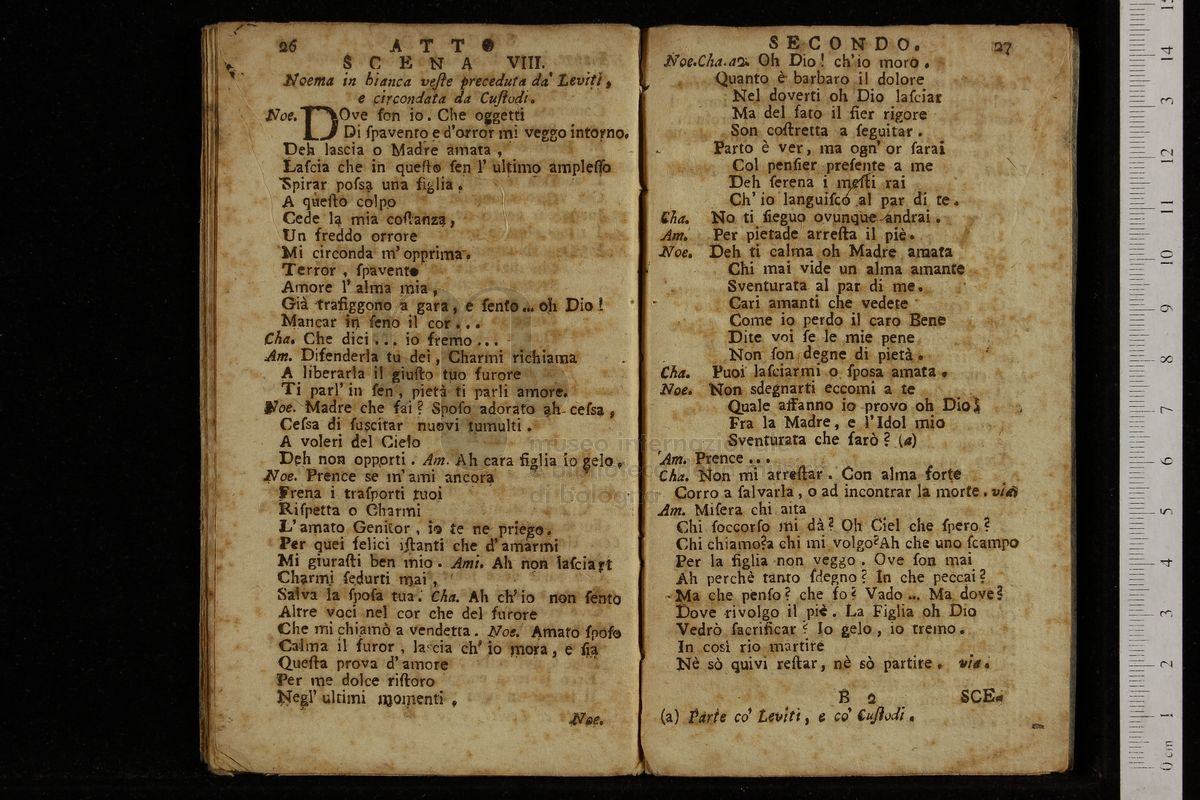 26 ATTO
SCENA VIII.
Noema in bianca veſte preceduta da' Leviti,
e circondata da Cuſtodi.
Noe. DOve ſon io. Che oggetti
Di ſpavento e d'orror mi veggo intorno.
Deh laſcia o Madre amata,
Laſcia che in queſto ſen l' ultimo ampleſſo
Spirar poſsa una figlia.
A queſto colpo
Cede la mia coſtanza,
Un freddo orrore
Mi circonda m' opprima.
Terror, ſpavento
Amore l' alma mia,
Già trafiggono a gara, e ſento... oh Dio!
Mancar in ſeno il cor...
Cha. Che dici... io fremo...
Am. Difenderla tu dei, Charmi richiama
A liberarla il giuſto tuo furore
Ti parl' in ſen, pietà ti parli amore.
Noe. Madre che fai? Spoſo adorato ah ceſsa,
Ceſsa di ſuſcitar nuovi tumulti.
A voleri del Cielo
Deh non opporti. Am. Ah cara figlia io gelo.
Noe. Prence se m' ami ancora
Frena i traſporti tuoi
Riſpetta o Charmi
L' amato Genitor, io te ne priego.
Per quei felici iſtanti che d' amarmi
Mi giuraſti ben mio. Ami. Ah non laſciart
Charmi ſedurti mai,
Salva la ſpoſa tua. Cha. Ah ch' io non ſento
Altre voci nel cor che del furore
Che mi chiamò a vendetta. Noe. Amato ſpoſo
Calma il furor, laſcia ch' io mora, e ſia
Queſta prova d' amore
Per me dolce riſtoro
Negl' ultimi momenti,
Noe.
SECONDO. 27
Noe.Cha.a2. Oh Dio! ch'io moro.
Quanto è barbaro il dolore
Nel doverti oh Dio laſciar
Ma del fato il fier rigore
Son coſtretta a ſeguitar.
Parto è ver, ma ogn' or ſarai
Col penſier preſente a me
Deh ſerena i meſti rai
Ch' io languiſco al par di te.
Cha. No ti ſieguo ovunque andrai.
Am. Per pietade arreſta il piè.
Noe. Deh ti calma oh Madre amata
Chi mai vide un alma amante
Sventurata al par di me.
Cari amanti che vedete
Come io perdo il caro Bene
Dite voi ſe le mie pene
Non ſon degne di pietà.
Cha. Puoi laſciarmi o ſposa amata.
Noe. Non sdegnarti eccomi a te
Quale affanno io provo oh Dio!
Fra la Madre, e l'Idol mio
Sventurata che farò? (a)
Am. Prence...
Cha. Non mi arreſtar. Con alma forte
Corro a ſalvarla, o ad incontrar la morte. via
Am. Miſera chi aita
Chi ſoccorſo mi dà? Oh Ciel che ſpero?
Chi chiamo? a chi mi volgo? Ah che uno ſcampo
Per la figlia non veggo. Ove ſon mai
Ah perchè tanto ſdegno? In che peccai?
Ma che penſo? che fo? Vado... Ma dove?
Dove rivolgo il piè. La Figlia oh Dio
Vedrò ſacrificar? Io gelo, io tremo.
In così rio martire
Nè sò quivi reſtar, nè sò partire. via.
B 2 SCE-
(a) Parte co' Leviti, e co' Cuſtodi.